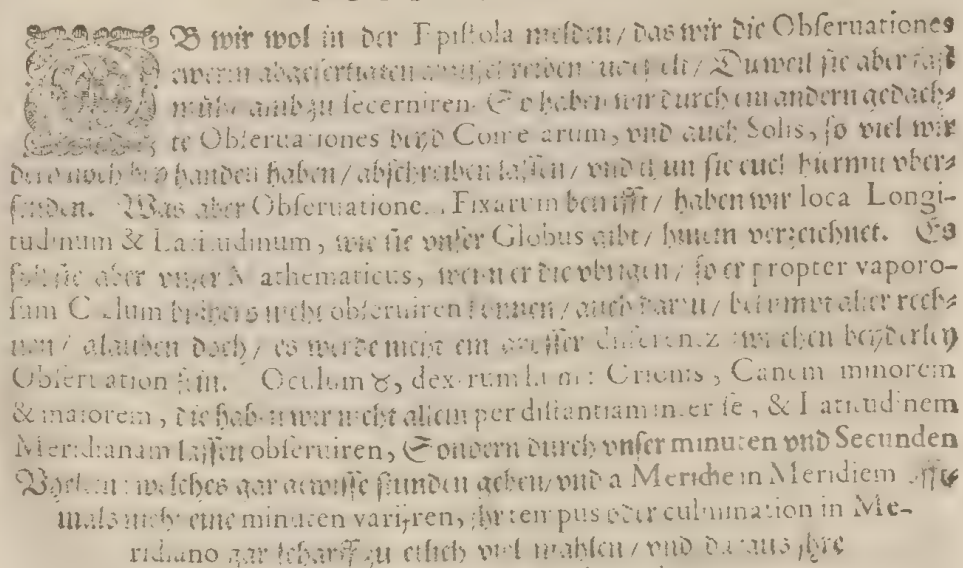 OB wir wol in der Epistola melden / das wir die Obseruationes
ewerm abgefertigten / Dieweil sie aber fast
mühsamb zu secerniren. So haben wir durch ein andern gedach-
te Obseruationes beyd Cometarum, vnd auch Solis, so viel wir
dero noch bey handen haben / abschreiben lassen / vnd thun sie euch hiermit vber-
senden. Was aber Obseruationes Fixarum betrifft / haben wir loca Longi-
tudinum & Latitudinum, wie sie vnser Globus gibt / hiriein verzeichnet. Es
soll sie aber vnser Mathematicus, wenn er die vbrigen / so er propter vaporo-
sum Cœlum bißhero nicht obseruiren können / auch darzu bekommet aller rech-
nen / glauben doch / es werde nicht ein grosser differenz zwischen beyderley
Obseruation sein. Oculum ♉, dextrum hum: Orionis, Canem minorem
& maiorem, die haben wir nicht allein per distantiam inter se, & Latitudinem
Meridianam lassen obseruiren, Sondern durch vnser minuten vnd Secunden
Vhrlein: welches gar gewisse stunden geben / vnd a Meridie in Meridiem offte
mals nicht eine minuten varijren, jhr tempus oder culmination in Me-
ridiano gar scharff zu etlich viel mahlen / vnd daraus jhre